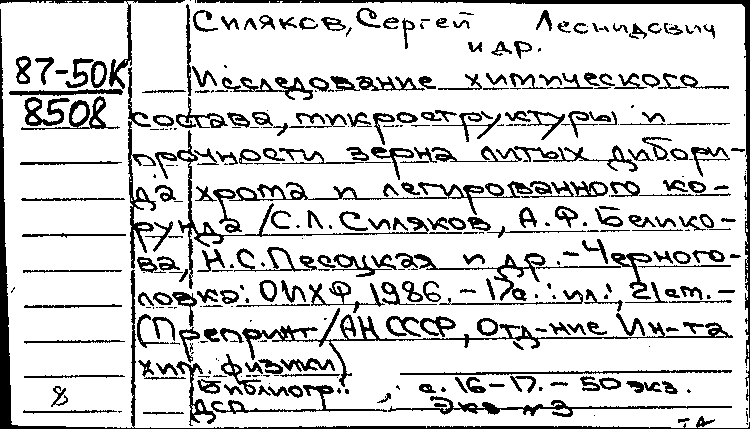 Силяков, Сергей Леонидович
и др.
87-50К
8508
Исследование химического
состава, микроструктуры и
прочности зерна литых дибори-
да хрома и легированного ко-
рунда /С.Л.Силяков, А.Ф.Белико-
ва, Н.С.Песоцкая и др.-Черного-
ловка: ОИХФ, 1986. - 17с.: ил.; 21см. -
(Препринт/АН СССР, Отд-ние Ин-та
хим. физики)
Библиогр.: с. 16-17. - 50 экз.
ДСП. Экз №3
8